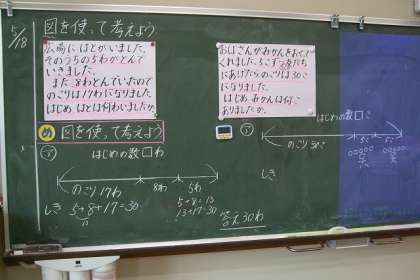 5/18
図を使って考えよう
広場にはとがいました。
そのうちの5わがとんで
いきました。
また8わとんでいたので
のこりは17わになりました。
はじめはとは何わいましたか。
め 図を使って考えよう
ア
はじめの数□わ
のこり17わ 8わ 5わ
しき 5+8+17=30
5+8=13
13+17=30
答え30わ
くれました。
のこりは30こ
になりました。
はじめみかんは何こ
ありましたか。
はじめの数□こ
のこり30こ
しき